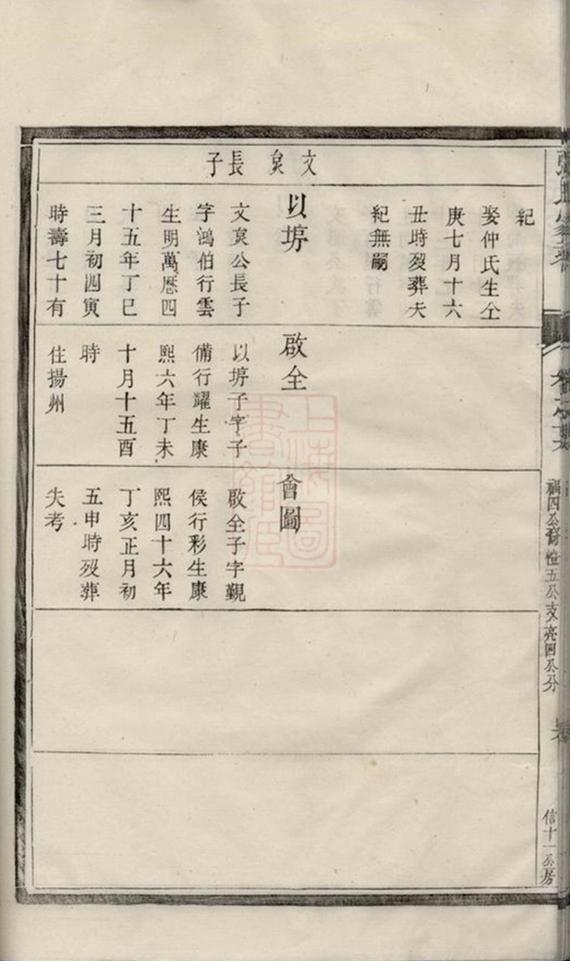 文㒶長子
紀
娶仲氏生仝
庚七月十六
丑時歿葬失
紀無嗣
以塝
文㒶公長子
字鴻伯行雲
生明萬曆四
十五年丁巳
三月初四寅
時壽七十有
啟全
以塝子字子
備行躍生康
熙六年丁未
十月十五酉
時
住揚州
會圖
啟全子字覲
侯行彩生康
熙四十六年
丁亥正月初
五申時歿葬
失考
福四公 性五公支亮四公分
信十一公房
上海圖書館藏